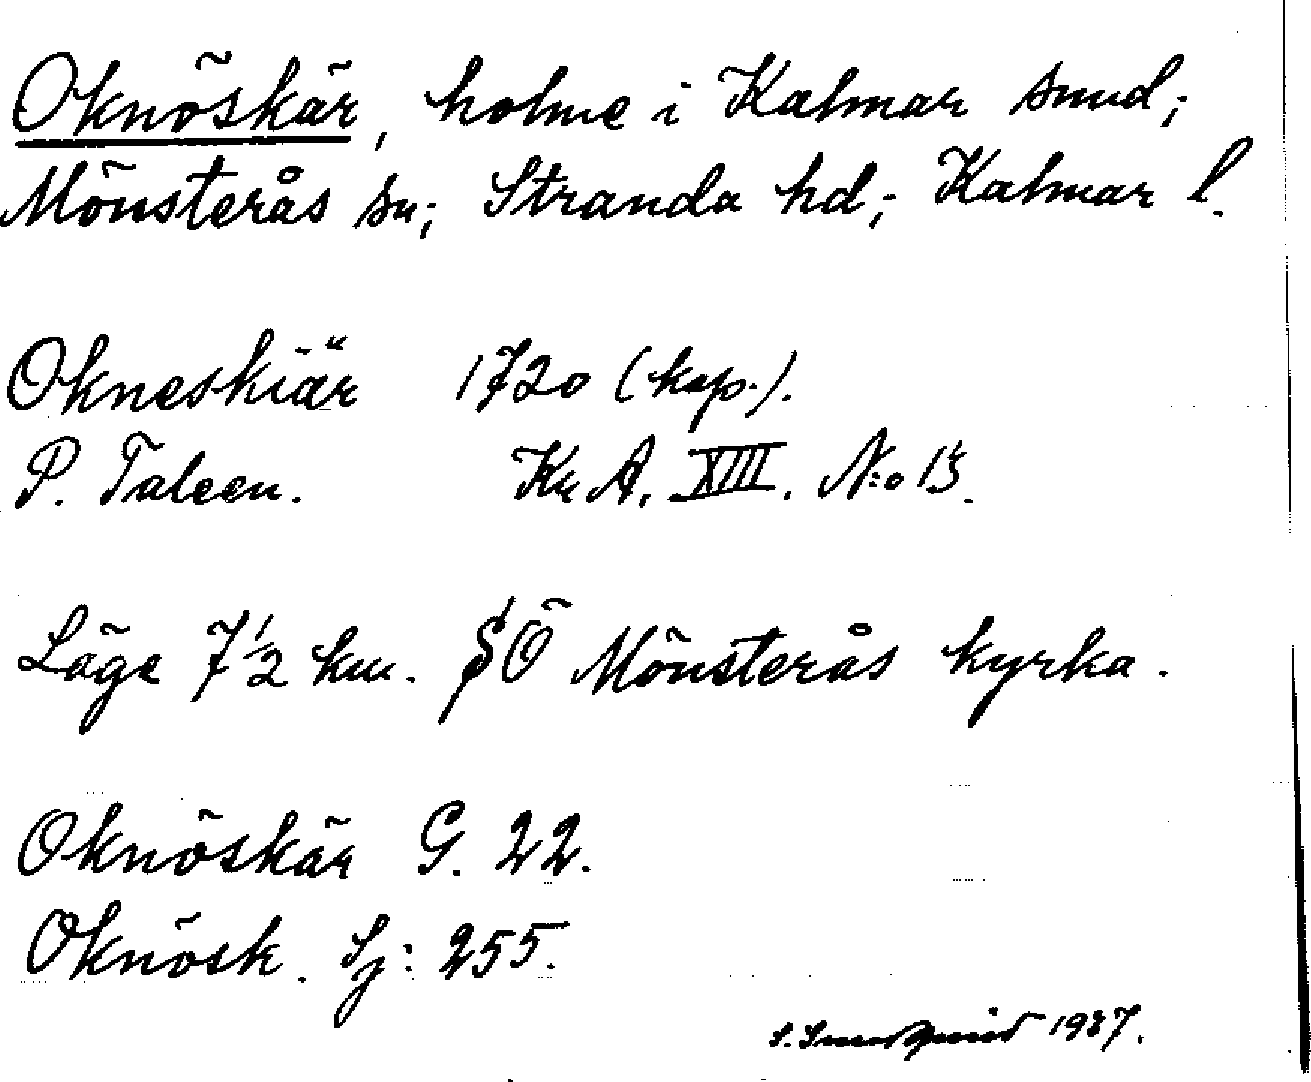 Oknöskär, holme i Kalmar sund;
Mönsterås sn; Stranda hd; Kalmar l.
Okneskiär 1720 (kop.).
P. Taleen. Kr A. XIII. N:o 13.
Läge 7 1/2 km. SÖ Mönsterås kyrka.
Oknöskär G. 22.
Oknösk. Sj: 255.
1937.